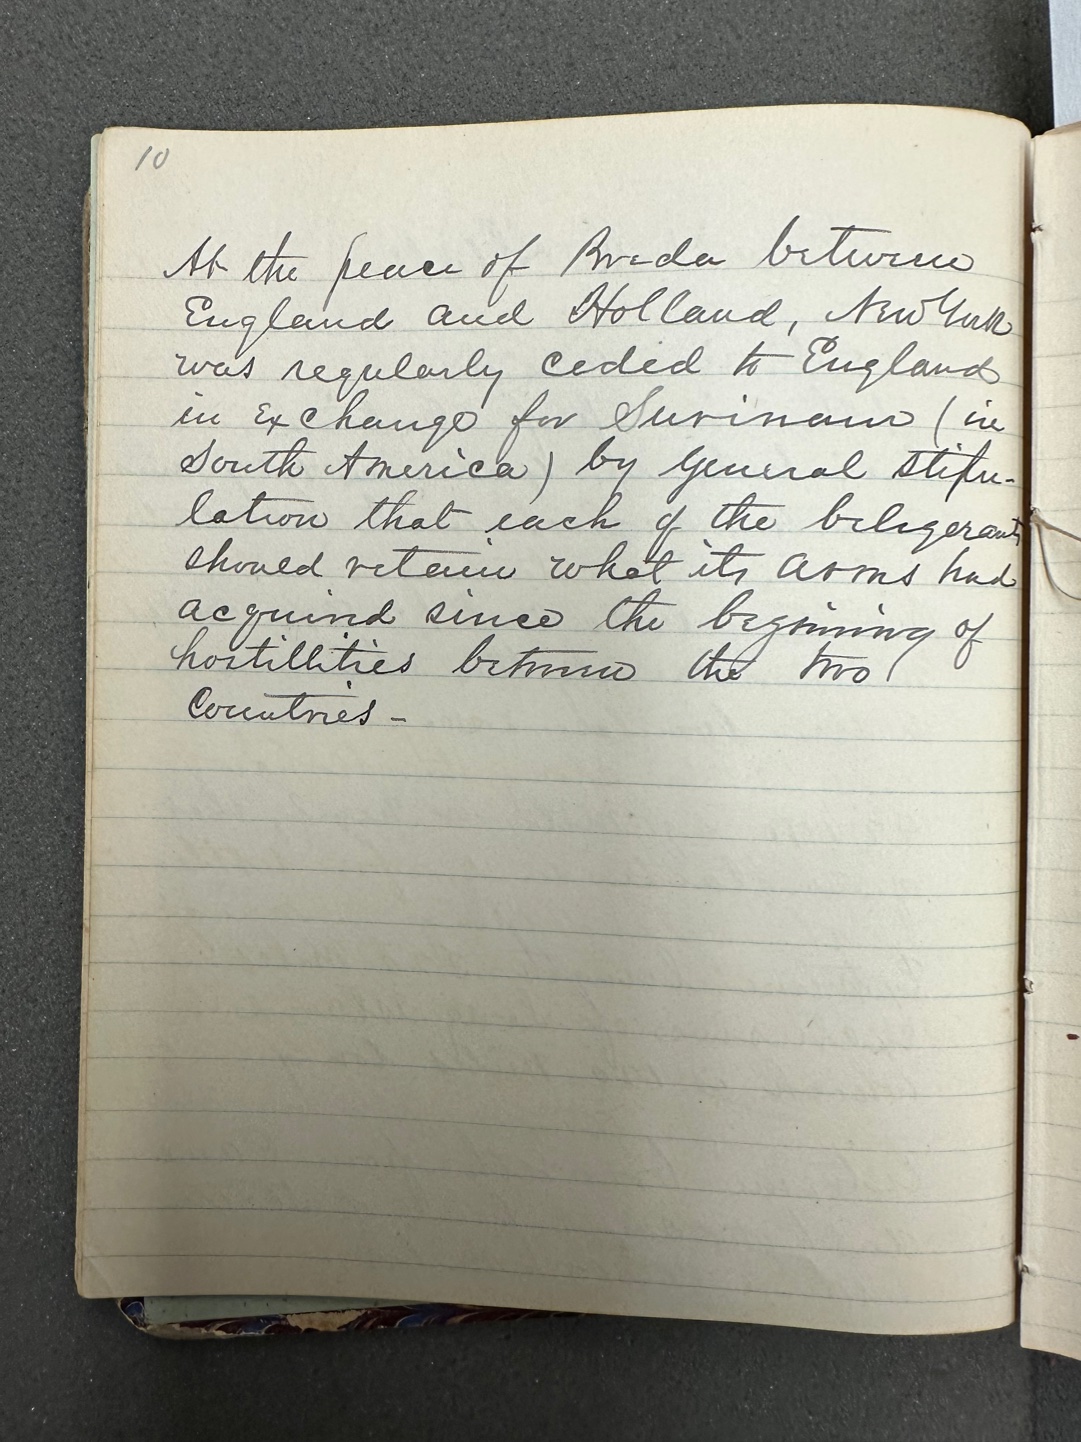 10
At the peace of Breda between
England and Holland, New York
was regularly ceded to England
in exchange for Surinam (in
South America) by general stipu-
lation that each of the beligerants
should retain what its arms had
acquired since the begining of
hostillities between the two
Countries -